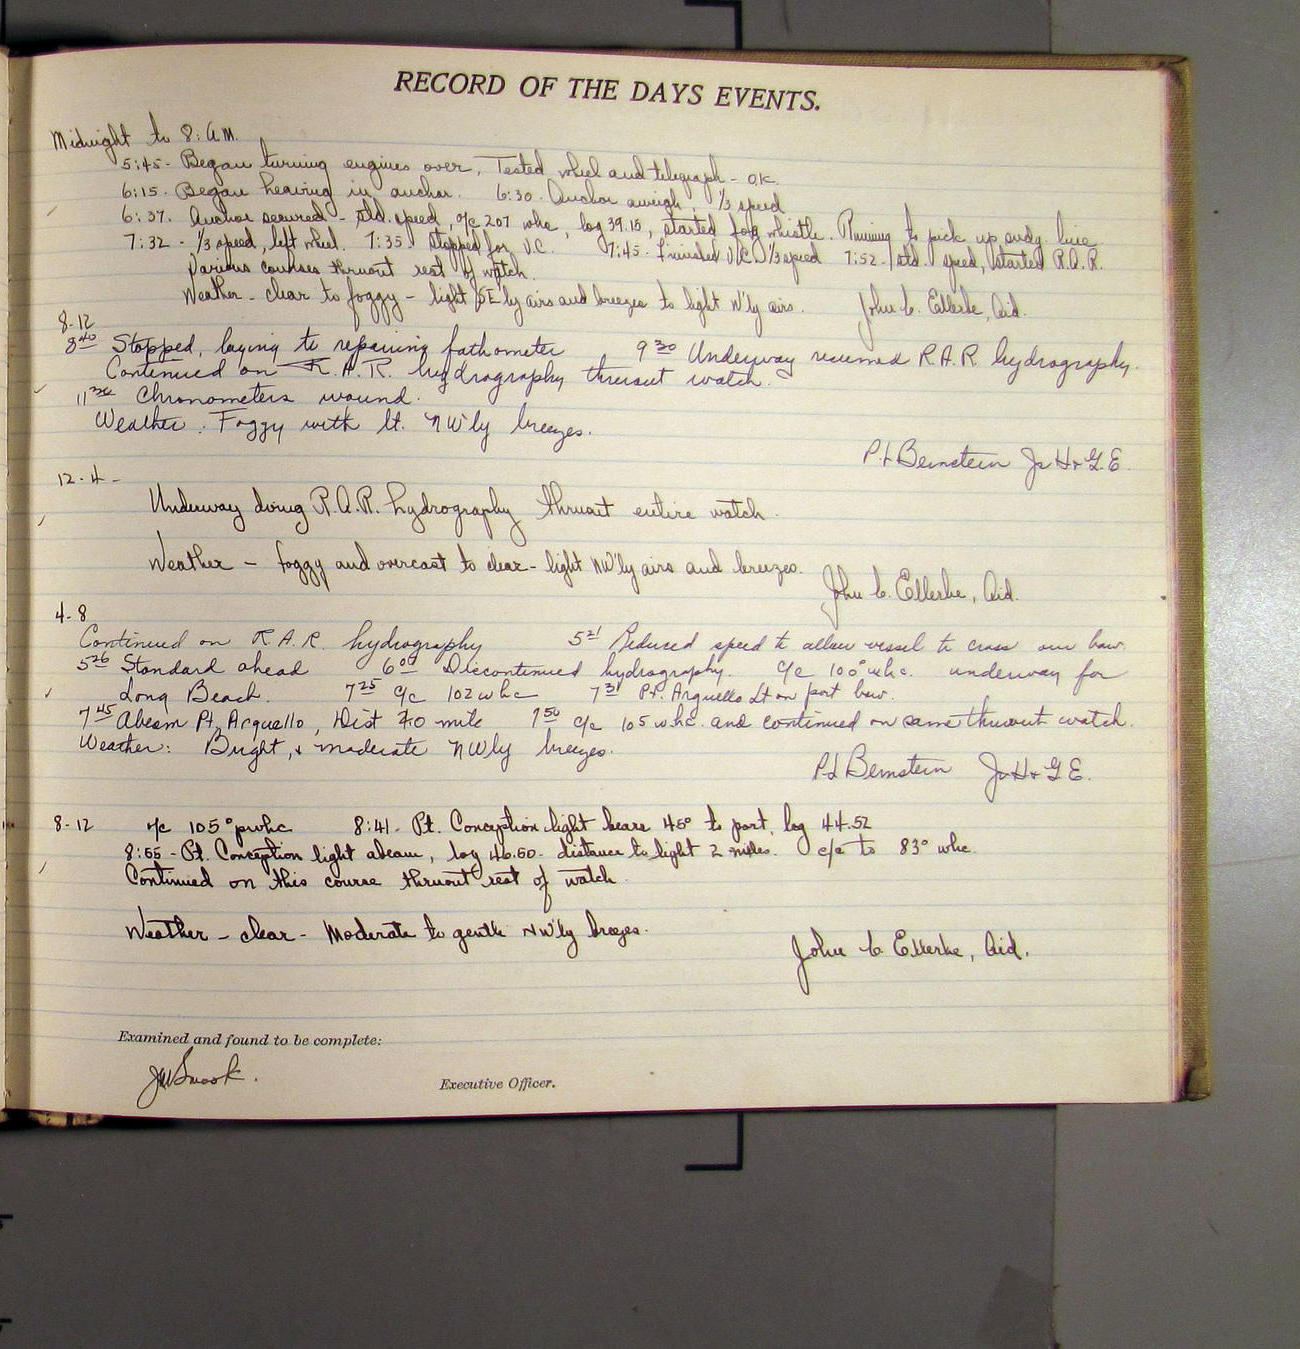 RECORD OF THE DAYS EVENTS.
Midnight to 8: A.M.
5:45- Began turning engines over, Tested wheel and telegraph - O.K.
6:15- Began heaving in anchor. 6:30- Anchor aweigh, 1/3 speed
6:37. Anchor secured - std. speed, c/c 207 whc, log 39.15, started fog whistle. Running to pick up sndg. line
7:32 - 1/3 speed, left wheel. 7:35. Stopped for V.C. 7:45- Finished V.C. 1/3 speed 7:52- std. speed, started R.A.R.
Various courses thruout rest of watch.
Weather - clear to foggy - light SE'ly airs and breezes to light W'ly airs. John C. Ellerbe, Aid.
8-12
8 40 Stopped, laying to repairing fathometer 9 30 Underway resumed R.A.R. hydrography.
Continued on R.A.R. hydrography thruout watch.
11 30 Chronometers wound.
Weather: Foggy with lt. NW'ly breezes.
P.L. Bernstein Jr. H & G.E.
12-4-
Underway doing R.A.R. hydrography thruout entire watch.
Weather - foggy and overcast to clear - light NW'ly airs and breezes.
John C. Ellerbe, Aid.
4-8
Continued on R.A.R. hydrography 5 21 Reduced speed to allow vessel to cross our bow.
5 26 Standard ahead 6 00 Discontinued hydrography. c/c 100° whc. underway for
Long Beach. 7 25 c/c 102 whc 7 31 Pt. Arguello Lt on port bow.
7 45 Abeam Pt. Arguello, Dist mile 7 50 c/c 105 whc. and continued on same thruout watch.
Weather: Bright, & moderate NW'ly breezes.
P.L. Bernstein Jr. H & G.E.
8-12 c/c 105° pwhc 8:41- Pt. Conception light bears 45° to port, log 44.52
8:55 - Pt. Conception light abeam, log 46.50- distance to light 2 miles. c/c to 83° whc.
Continued on this course thruout rest of watch.
Weather - clear - Moderate to gentle NW'ly breezes.
John C. Ellerbe, Aid.
Examined and found to be complete:
Executive Officer.